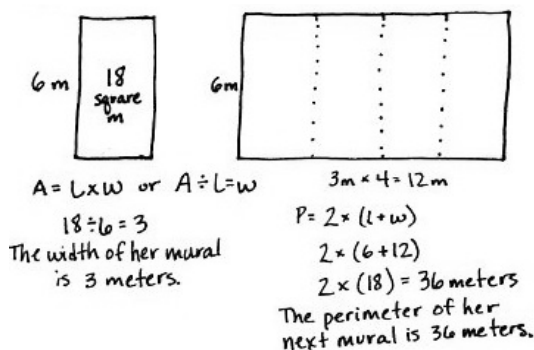 6 m
18
square
m
A = L x W or A ÷ L = W
18 ÷ 6 = 3
The width of her mural
is 3 meters.
6 m
3m x 4 = 12m
P = 2 x (l + w)
2 x (6 + 12)
2 x (18) = 36 meters
The perimeter of her
next mural is 36 meters.